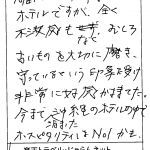 ホテルですが、全く
不潔感もなく、むしろ
古いものを大切に磨き、
守っているという印象を受け
非常に好感がもてました。
今まで沖縄のホテルの中で
泊まった
ホスピタリティはNo1かも